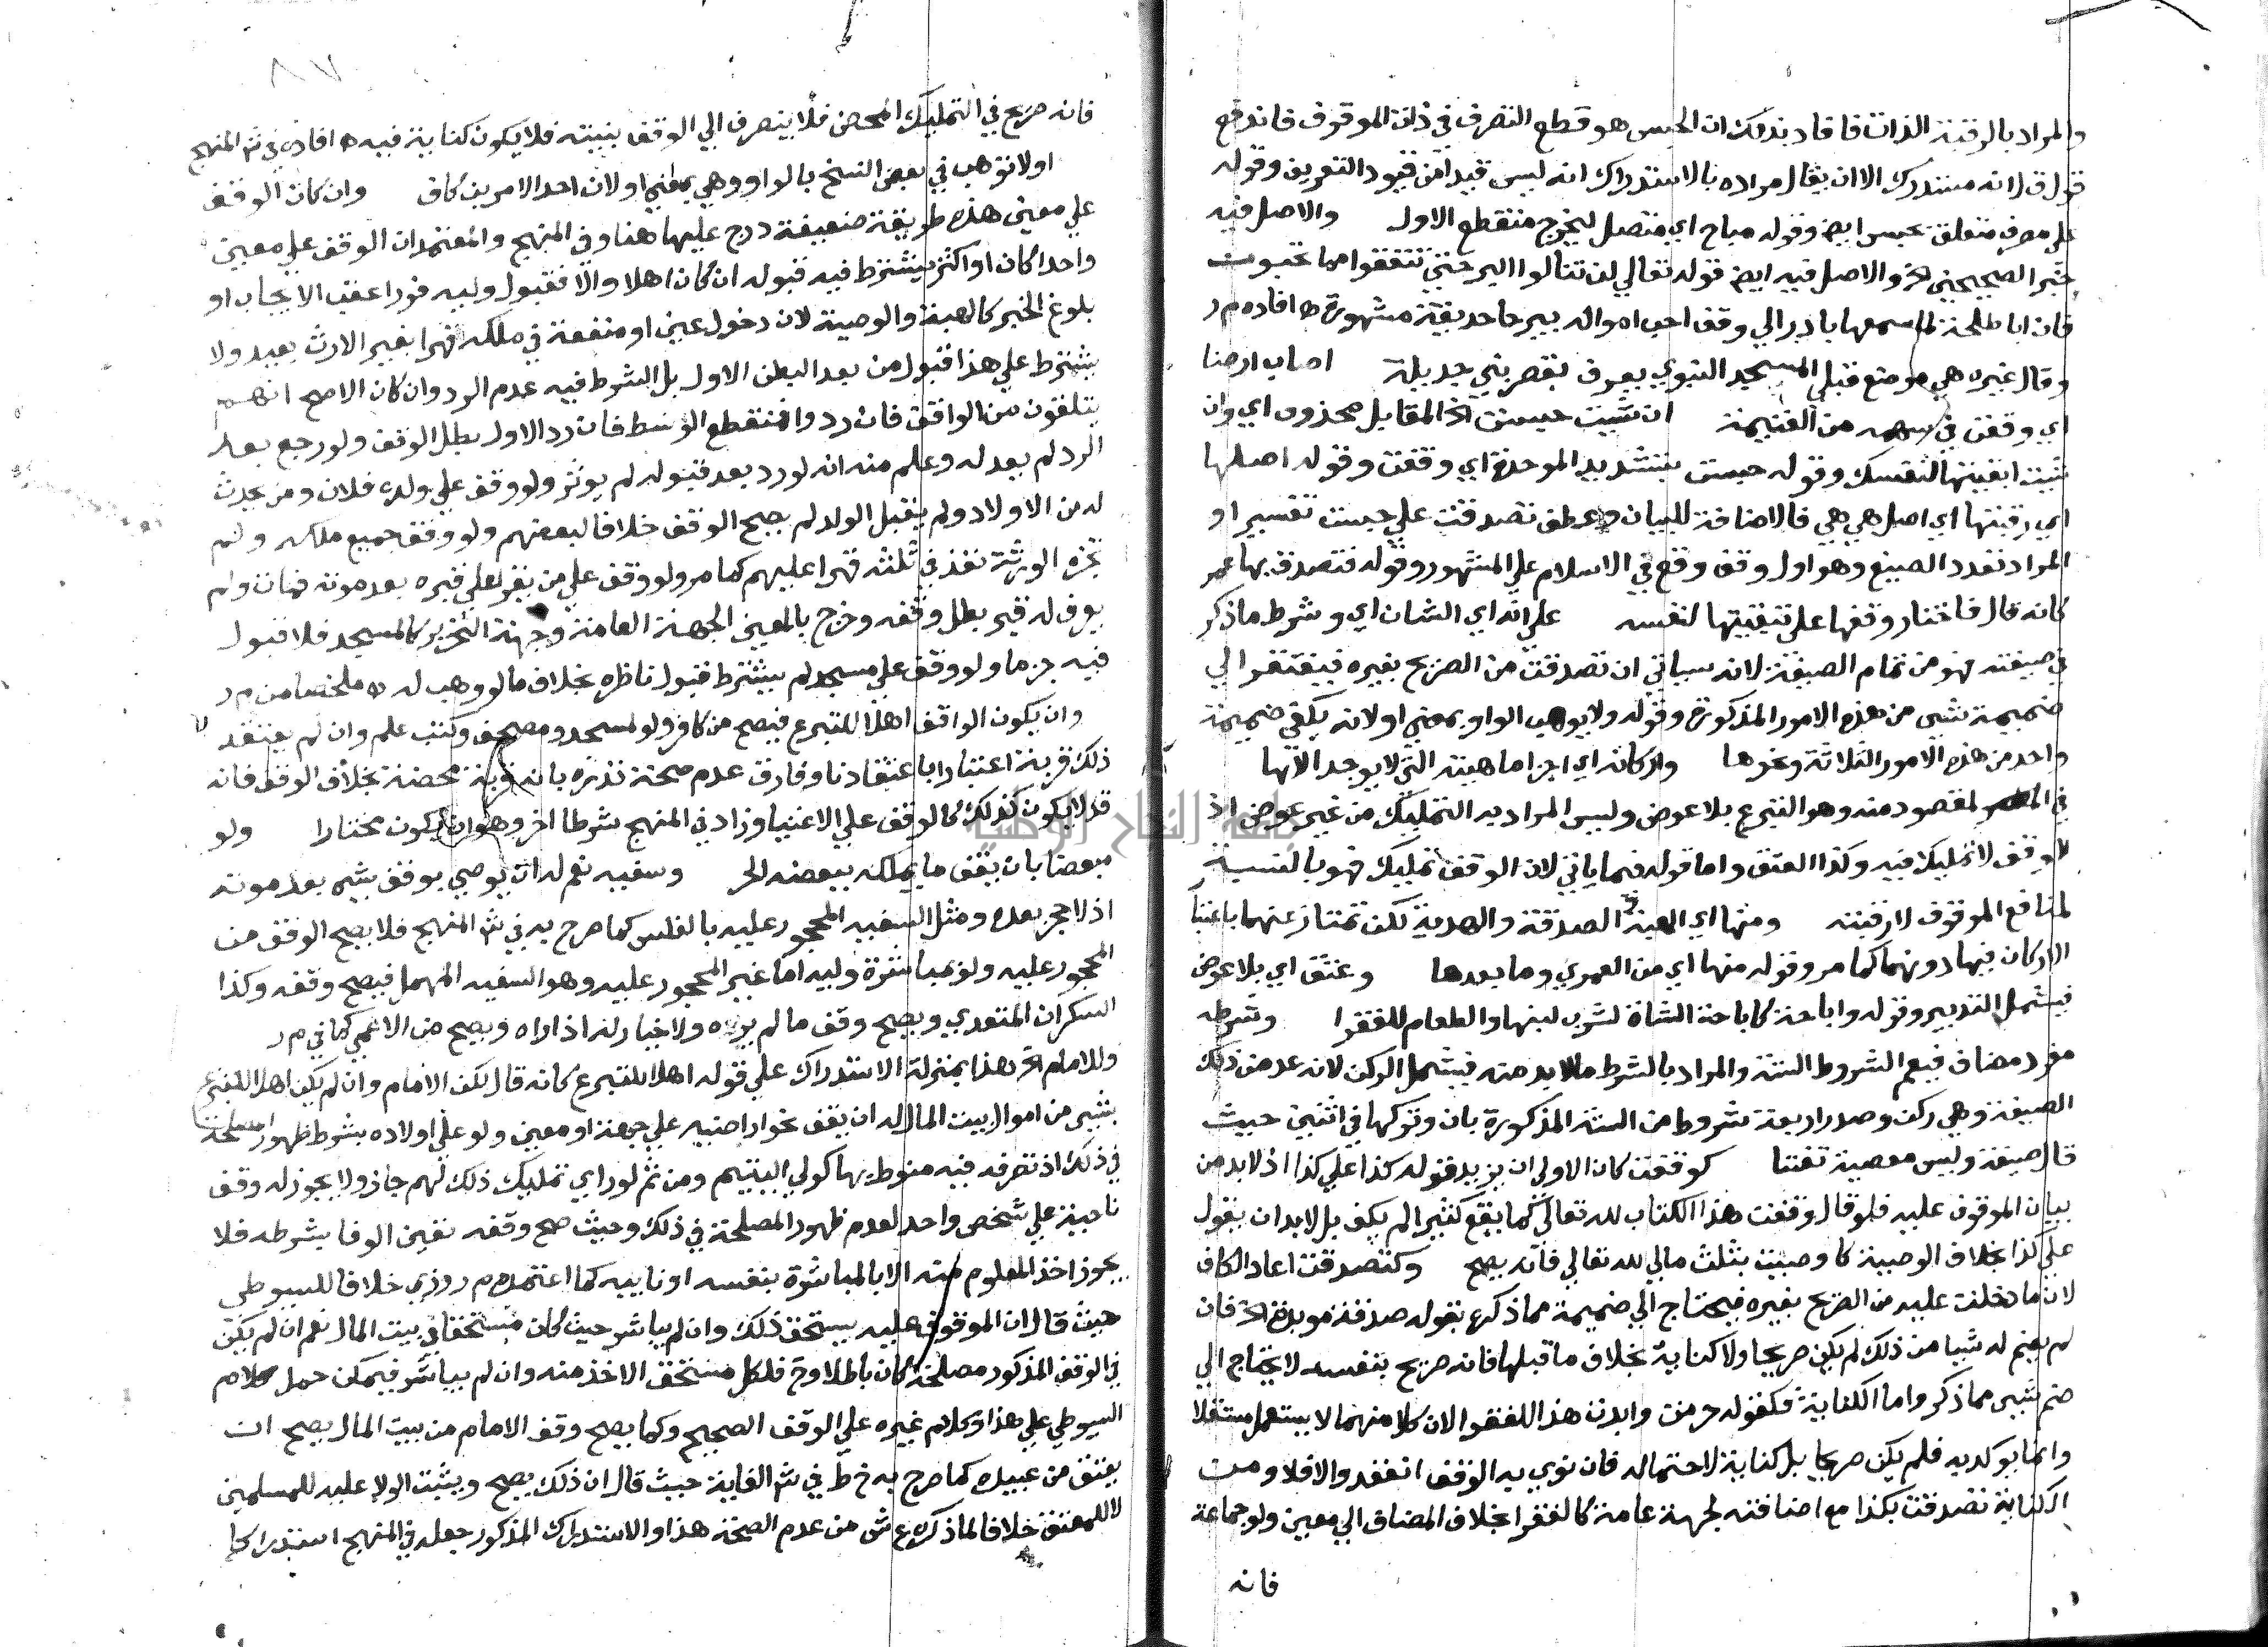 والمراد بالرقبة الذات فافاد بذلك ان الحبس هو قطع التصرف في ذات الموقوف فاندفع
قول ق ل انه مستدرك الا ان يقال مراده بالاستدراك انه ليس قيدا من قيود التعريف وقوله
علي مصرف متعلق بحبس ايض وقوله مباح اي متصل ليخرج منقطع الاول والاصل فيه
خبر الصحيحين الخ والاصل فيه ايض قوله تعالي لن تنالوا البر حتي تنفقوا مما تحبون
فان ابا طلحة لما سمعها بادر الي وقف احب امواله بيرحا حديقة مشهورة اه افاده م ر
وقال غيره هي موضع قبلي المسجد النبوي يعرف بقصر بني جديلة اصاب ارضا
اي وقعت في سهمه من الغنيمة ان شيت حبست الخ المقابل محذوف اي وان
شيت ابقيتها لنفسك وقوله حبست بتشديد الموحدة اي وقفت وقوله اصلها
اي رقبتها اي اصل هي هي فالاضافة للبيان وعطف تصدقت علي حبست تفسير او
المراد تعدد الصيغ وهو اول وقف وقع في الاسلام علي المشهور وقوله فتصدق بها عمر
كانه قال فاختار وقفها علي تبقيتها لنفسه علي انه اي الشان اي وشرط ما ذكر
في صيغته فهو من تمام الصيغة لانه سياتي ان تصدقت من الصريح بغيره فيفتقر الي
ضميمة شي من هذه الامور المذكورة وقوله ولا يوهب الواو بمعني او لانه يكفي ضميمة
واحد من هذه الامور الثلاثة ونحوها واركانه اي اجزا ماهيته التي لا يوجد الا بها
في المقصود منه وهو التبرع بلا عوض وليس المراد به التمليك من غير عوض اذ
الوقف لا تمليك فيه وكذا العتق واما قوله فيما ياتي لان الوقف تمليك فهو بالنسبة
لمنافع الموقوف لا رقبته ومنها اي الهبة الصدقة والهدية لكن تمتاز عنهما باعتبا
الاركان فيها دونهما كما مر وقوله منها اي من العمري وما بعدها وعتق اي بلا عوض
فيشمل التدبير وقوله واباحة كاباحة الشاة لشرب لبنها والطعام للفقرا وشرطه
مفرد مضاف فيعم الشروط الستة والمراد بالشرط ما لا بد منه فيشمل الركن لانه عد من ذلك
الصيغة وهي ركن وصدر اربعة شروط من الستة المذكورة بان وتركها في اثنين حيث
قال صيغة وليس معصية تفننا كوقفت كان الاولي ان يزيد قوله كذا علي كذا اذ لا بد من
بيان الموقوف عليه فلو قال وقفت هذا الكتاب لله تعالي كما يقع كثيرا لم يكف بل لا بد ان يقول
علي كذا بخلاف الوصية كاوصيت بثلث مالي لله تعالي فانه يصح وكتصدقت اعاد الكاف
لان ما دخلت عليه من الصريح بغيره فيحتاج الي ضميمة مما ذكره بقوله صدقة موبدة الخ فان
لم يضم له شيا من ذلك لم يكن صريحا ولا كناية بخلاف ما قبلها فانه صريح بنفسه لا يحتاج الي
ضم شيي مما ذكر واما الكناية فكقوله حرمت وابدت هذا للفقرا لان كلا منهما لا يستعمل مستقلا
وانما يوكد به فلم يكن صريحا بل كناية لاحتماله فان نوي به الوقف انعقد والا فلا ومن
الكناية تصدقت بكذا مع اضافته لجهة عامة كالفقرا بخلاف المضاف الي معين ولو جماعة
فانه
٨٧
فانه صريح في التمليك المحض فلا ينصرف الي الوقف بنيته فلا يكون كناية فيه اه افاده في ش المنهج
او لا توهب في بعض النسخ بالواو وهي بمعني او لان احد الامرين كاف وان كان الوقف
علي معين هذه طريقة ضعيفة درج عليها هنا وفي المنهج والمعتمد ان الوقف علي معين
واحدا كان او اكثر يشترط فيه قبوله ان كان اهلا والا فقبول وليه فورا عقب الايجاب او
بلوغ الخبر كالهبة والوصية لان دخول عين او منفعة في ملكه قهرا بغير الارث بعيد ولا
يشترط علي هذا قبول من بعد البطن الاول بل الشرط فيه عدم الرد وان كان الاصح انهم
يتلقون من الواقف فان ردوا فمنقطع الوسط فان رد الاول بطل الوقف ولو رجع بعد
الرد لم يعد له وعلم منه انه لو رد بعد قبوله لم يوثر ولو وقف علي ولده فلان ومن يحدث
له من الاولاد ولم يقبل الولد لم يصح الوقف خلافا لبعضهم ولو وقف جميع ملكه ولم
تجزه الورثة نفذ في ثلثه قهرا عليهم كما مر ولو وقف علي من يقرا علي قبره بعد موته فمات ولم
يعرف له قبر بطل وقفه وخرج بالمعين الجهة العامة وجهة التحرير كالمسجد فلا قبول
فيه جزما ولو وقف علي مسجد لم يشترط قبول ناظره بخلاف ما لو وهب له اه ملخصا من م ر
وان يكون الواقف اهلا للتبرع فيصح من كافر ولو لمسجد ومصحف وكتب علم وان لم يعتقد
ذلك قربة اعتبارا باعتقادنا وفارق عدم صحة نذره بانه قربة محضة بخلاف الوقف فانه
قد لا يكون كذلك كالوقف علي الاغنيا وزاد في المنهج شرطا اخر وهو ان يكون مختارا ولو
مبعضا بان يقف ما يملكه ببعضه الحر وسفيه نعم له ان يوصي بوقف بشي بعد موته
اذ لا حجر بعده ومثل السفيه المحجور عليه بالفلس كما صرح به في ش المنهج فلا يصح الوقف من
المحجور عليه ولو بمباشرة وليه اما غير المحجور عليه وهو السفيه المهمل فيصح وقفه وكذا
السكران المتعدي ويصح وقف ما لم يره ولا خيار له اذا راه ويصح من الاعمي كما في م ر
وللامام الخ هذا بمنزلة الاستدراك علي قوله اهلا للتبرع كانه قال لكن الامام وان لم يكن اهلا للتبرع
بشي من اموال بيت المال له ان يقف نحو اراضيه علي جهة او معين ولو علي اولاده بشرط ظهور المصلحة
في ذلك اذ تصرفه فيه منوط بها كولي اليتيم ومن ثم لو راي تمليك ذلك لهم جاز ولا يجوز له وقف
ناحية علي شخص واحد لعدم ظهور المصلحة في ذلك وحيث صح وقفه تعين الوفا بشرطه فلا
يجوز اخذ المعلوم منه الا بالمباشرة بنفسه او نايبه كما اعتمده م ر وزي خلافا للسيوطي
حيث قال ان الموقوف عليه يستحق ذلك وان لم يباشر حيث كان مستحقا في بيت المال نعم ان لم يكن
في الوقف المذكور مصلحة كان باطلا وح فلكل مستحق الاخذ منه وان لم يباشر فيمكن حمل كلام
السيوطي علي هذا وكلام غيره علي الوقف الصحيح وكما يصح وقف الامام من بيت المال يصح ان
يعتق من عبيده كما صرح به خ ط في ش الغاية حيث قال ان ذلك يصح ويثبت الولا عليه للمسلمين
لا للمعتق خلافا لما ذكره ع ش من عدم الصحة هذا والاستدراك المذكور جعله في المنهج استدراكا